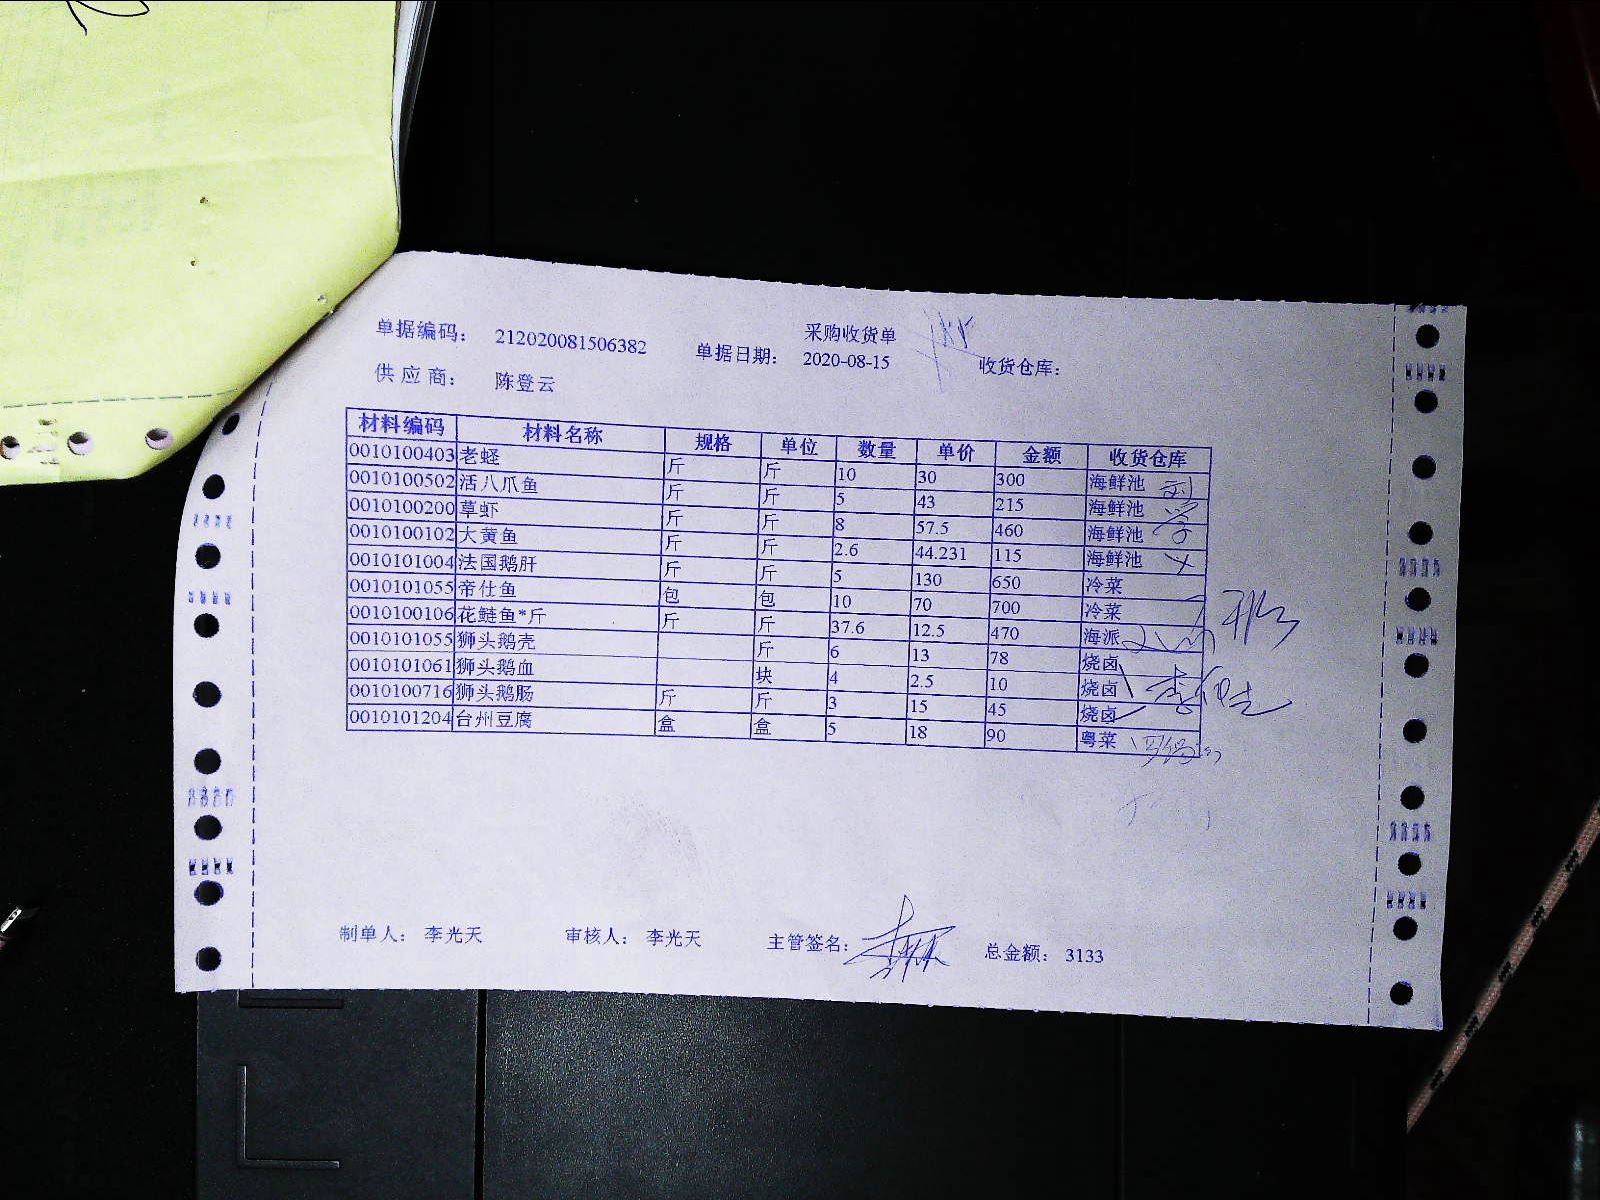 采购收货单
单据编码： 212020081506382 单据日期： 2020-08-15 收货仓库：
供应商： 陈登云
材料编码 材料名称 规格 单位 数量 单价 金额 收货仓库
0010100403 老蛏 斤 斤 10 30 300 海鲜池
0010100502 活八爪鱼 斤 斤 5 43 215 海鲜池
0010100200 草虾 斤 斤 8 57.5 460 海鲜池
0010100102 大黄鱼 斤 斤 2.6 44.231 115 海鲜池
0010101004 法国鹅肝 斤 斤 5 130 650 冷菜
0010101055 帝仕鱼 包 包 10 70 700 冷菜
0010100106 花鲢鱼*斤 斤 斤 37.6 12.5 470 海派
0010101055 狮头鹅壳 斤 6 13 78 烧卤
0010101061 狮头鹅血 块 4 2.5 10 烧卤
0010100716 狮头鹅肠 斤 斤 3 15 45 烧卤
0010101204 台州豆腐 盒 盒 5 18 90 粤菜
制单人： 李光天 审核人： 李光天 主管签名： 总金额： 3133